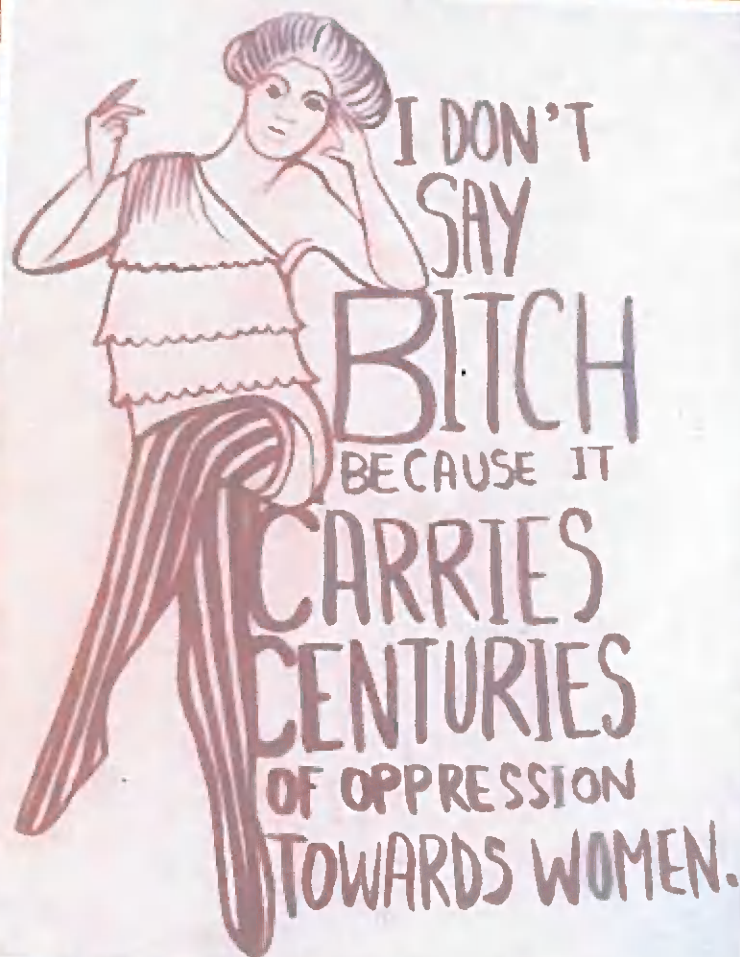 I DON'T
SAY
BITCH
BECAUSE IT
CARRIES
CENTURIES
OF OPPRESSION
TOWARDS WOMEN.